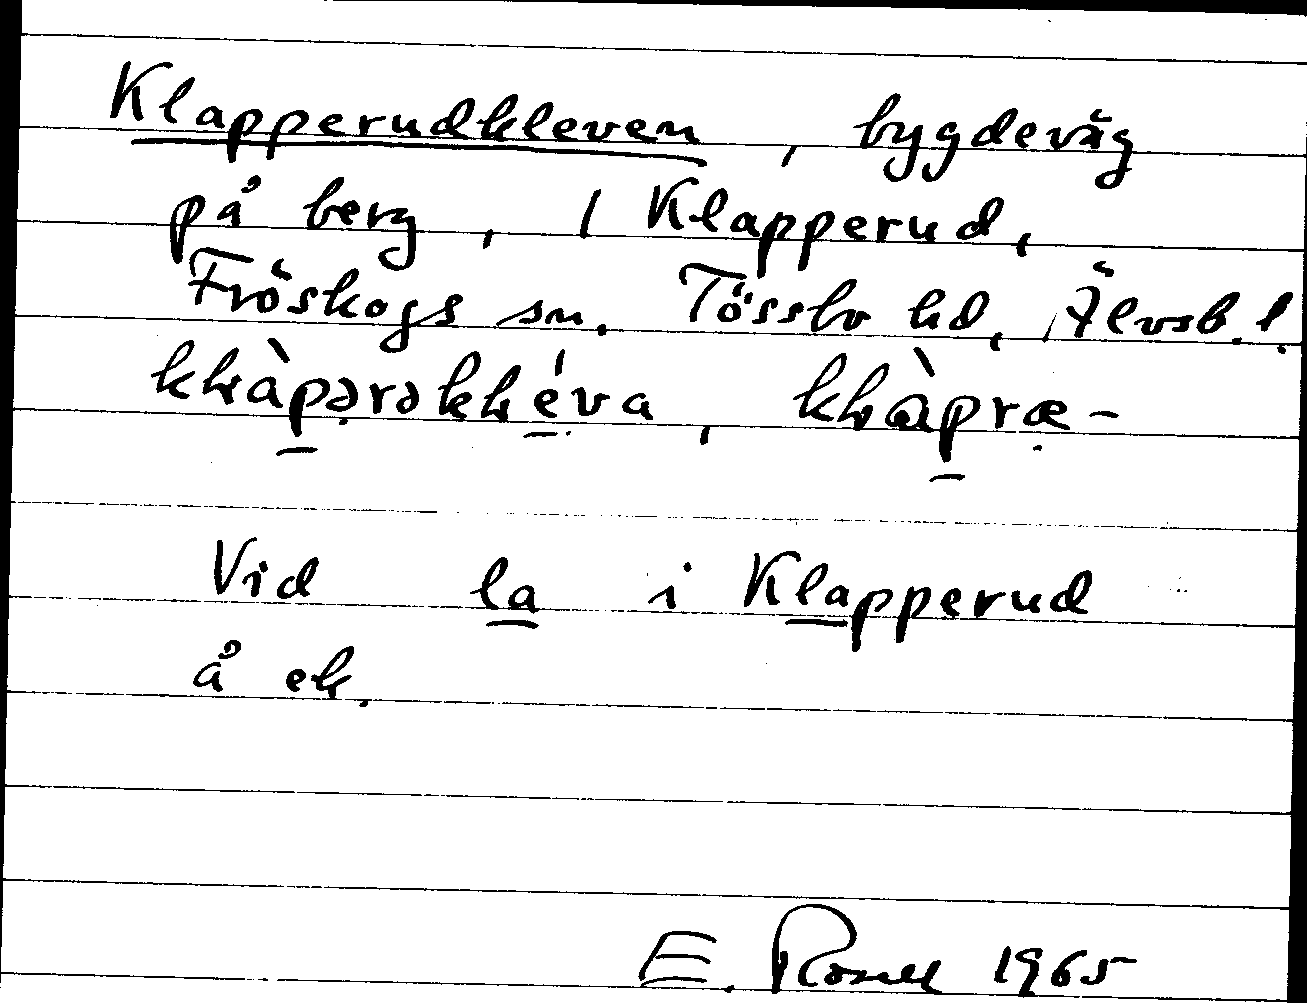 Klapperudkleven, bygdeväg
på berg, / Klapperud,
Fröskogs sn. Tössbo hd, Älvsb. l.
Vid la i Klapperud
å ek.
E. Rosell 1965